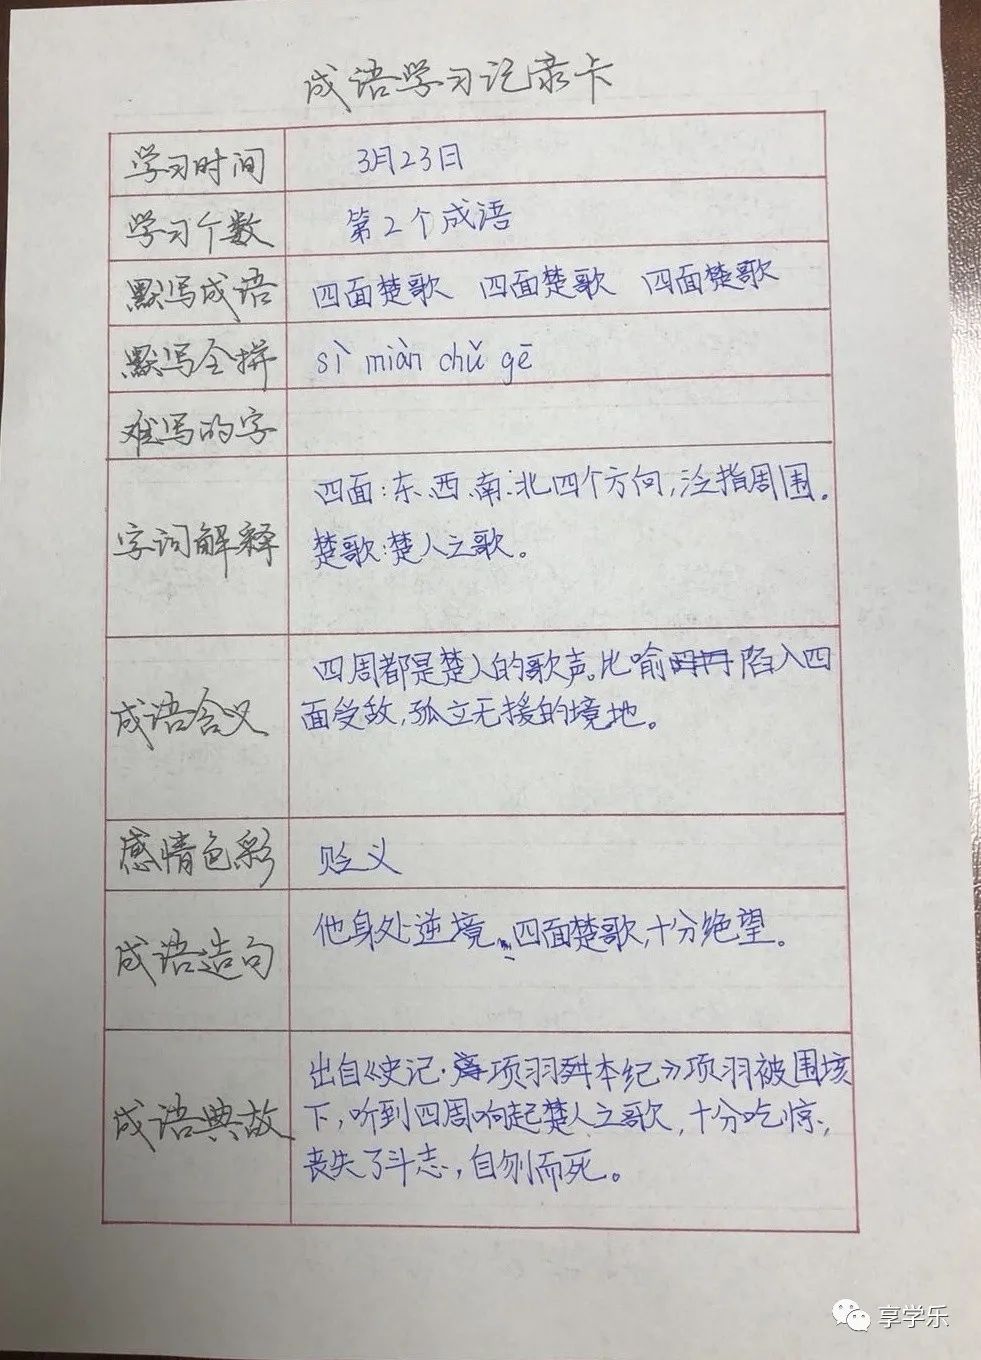 成语学习记录卡
学习时间 3月23日
学习个数 第2个成语
默写成语 四面楚歌 四面楚歌 四面楚歌
默写全拼 sì miàn chǔ gē
难写的字
字词解释
四面:东、西、南、北四个方向,泛指周围。
楚歌:楚人之歌。
成语含义
四周都是楚人的歌声。比喻陷入四
面受敌,孤立无援的境地。
感情色彩 贬义
成语造句
他身处逆境,四面楚歌,十分绝望。
成语典故
出自《史记·项羽本纪》项羽被围垓
下,听到四周响起楚人之歌,十分吃惊,
丧失了斗志,自刎而死。
享学乐